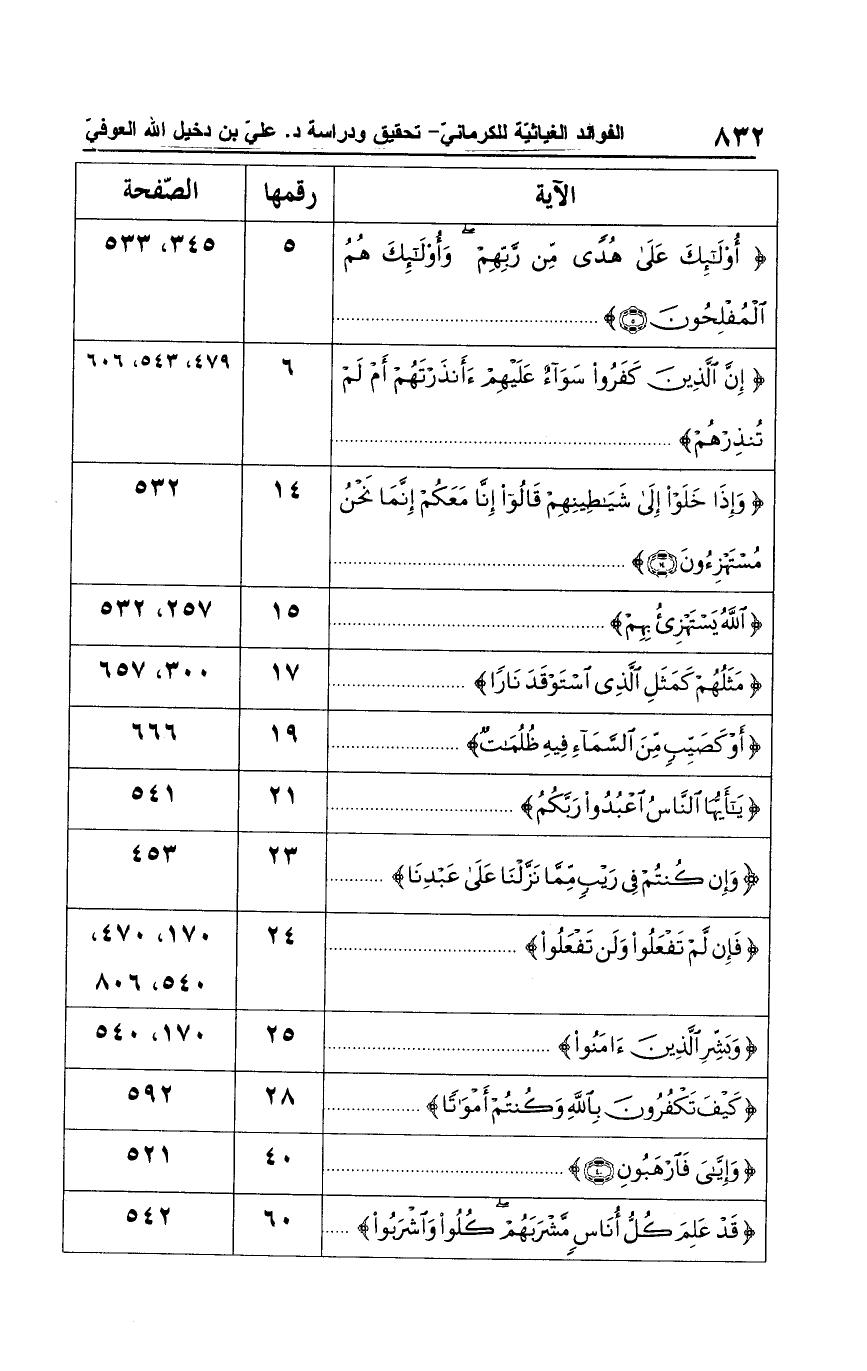 ٨٣٢ الفوائد الغياثيّة للكرمانيّ- تحقيق ودراسة د. عليّ بن دخيل الله العوفيّ
الآية رقمها الصّفحة
﴿ أُوْلَٰٓئِكَ عَلَىٰ هُدًى مِّن رَّبِّهِمْ ۖ وَأُوْلَٰٓئِكَ هُمُ ٥ ٣٤٥، ٥٣٣
ٱلْمُفْلِحُونَ ۝٥ ﴾ ..........
﴿ إِنَّ ٱلَّذِينَ كَفَرُواْ سَوَآءٌ عَلَيْهِمْ ءَأَنذَرْتَهُمْ أَمْ لَمْ ٦ ٤٧٩، ٥٤٣، ٦٠٦
تُنذِرْهُمْ ﴾ ..........
﴿ وَإِذَا خَلَوْاْ إِلَىٰ شَيَٰطِينِهِمْ قَالُوٓاْ إِنَّا مَعَكُمْ إِنَّمَا نَحْنُ ١٤ ٥٣٢
مُسْتَهْزِءُونَ ۝١٤ ﴾ ..........
﴿ ٱللَّهُ يَسْتَهْزِئُ بِهِمْ ﴾ .......... ١٥ ٢٥٧، ٥٣٢
﴿ مَثَلُهُمْ كَمَثَلِ ٱلَّذِى ٱسْتَوْقَدَ نَارًا ﴾ .......... ١٧ ٣٠٠، ٦٥٧
﴿ أَوْ كَصَيِّبٍ مِّنَ ٱلسَّمَآءِ فِيهِ ظُلُمَٰتٌ ﴾ .......... ١٩ ٦٦٦
﴿ يَٰٓأَيُّهَا ٱلنَّاسُ ٱعْبُدُواْ رَبَّكُمُ ﴾ .......... ٢١ ٥٤١
﴿ وَإِن كُنتُمْ فِى رَيْبٍ مِّمَّا نَزَّلْنَا عَلَىٰ عَبْدِنَا ﴾ .......... ٢٣ ٤٥٣
﴿ فَإِن لَّمْ تَفْعَلُواْ وَلَن تَفْعَلُواْ ﴾ .......... ٢٤ ١٧٠، ٤٧٠،
٥٤٠، ٨٠٦
﴿ وَبَشِّرِ ٱلَّذِينَ ءَامَنُواْ ﴾ .......... ٢٥ ١٧٠، ٥٤٠
﴿ كَيْفَ تَكْفُرُونَ بِٱللَّهِ وَكُنتُمْ أَمْوَٰتًا ﴾ .......... ٢٨ ٥٩٢
﴿ وَإِيَّٰىَ فَٱرْهَبُونِ ۝٤٠ ﴾ .......... ٤٠ ٥٢١
﴿ قَدْ عَلِمَ كُلُّ أُنَاسٍ مَّشْرَبَهُمْ ۖ كُلُواْ وَٱشْرَبُواْ ﴾ ..... ٦٠ ٥٤٢